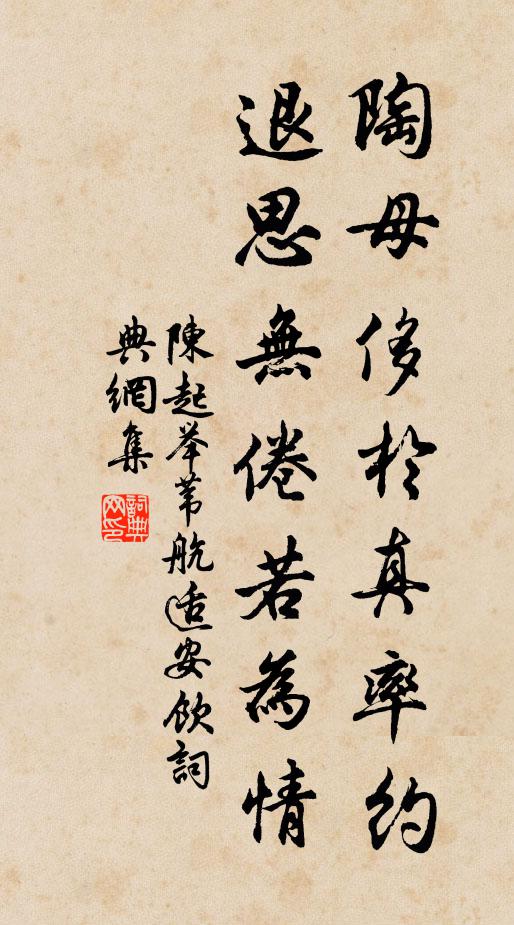 陶母侈於真率約
退思無倦若為情
陳起举苇航适安飲詞
典網集
詞典網印